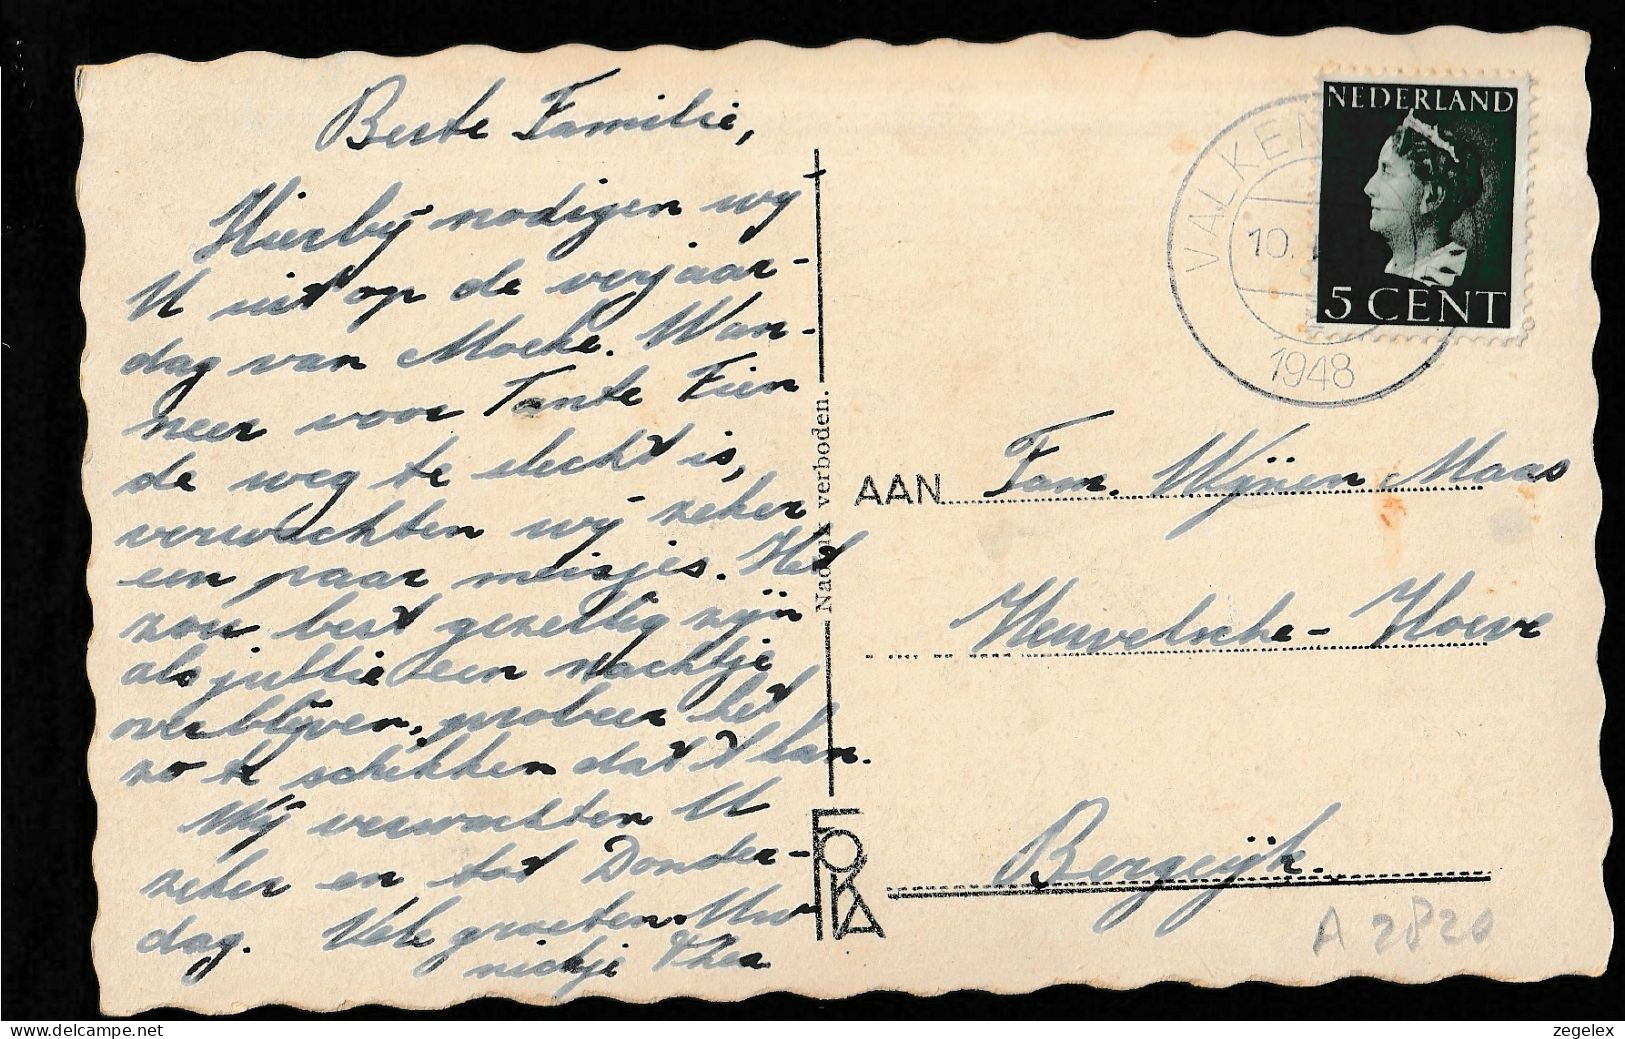 Beste Familie,
Hierbij nodigen wij
U uit op de verjaar-
dag van Moeke. Wan-
neer voor Tante Fien
de weg te slecht is,
verwachten wij zeker
een paar meisjes. Het
zou best gezellig zijn
als jullie een nachtje
overblijven, probeer het
zo te schikken dat 't kan.
Wij verwachten U
zeker en tot Donder-
dag. Vele groeten Uw
nichtje Thea
Nadruk verboden.
FOKA
NEDERLAND
5 CENT
VALKEN
10.
1948
AAN Fam. Wijnen Maas
Heuvelsche-Hoeve
Bergeijk.
A 2820
zegelex